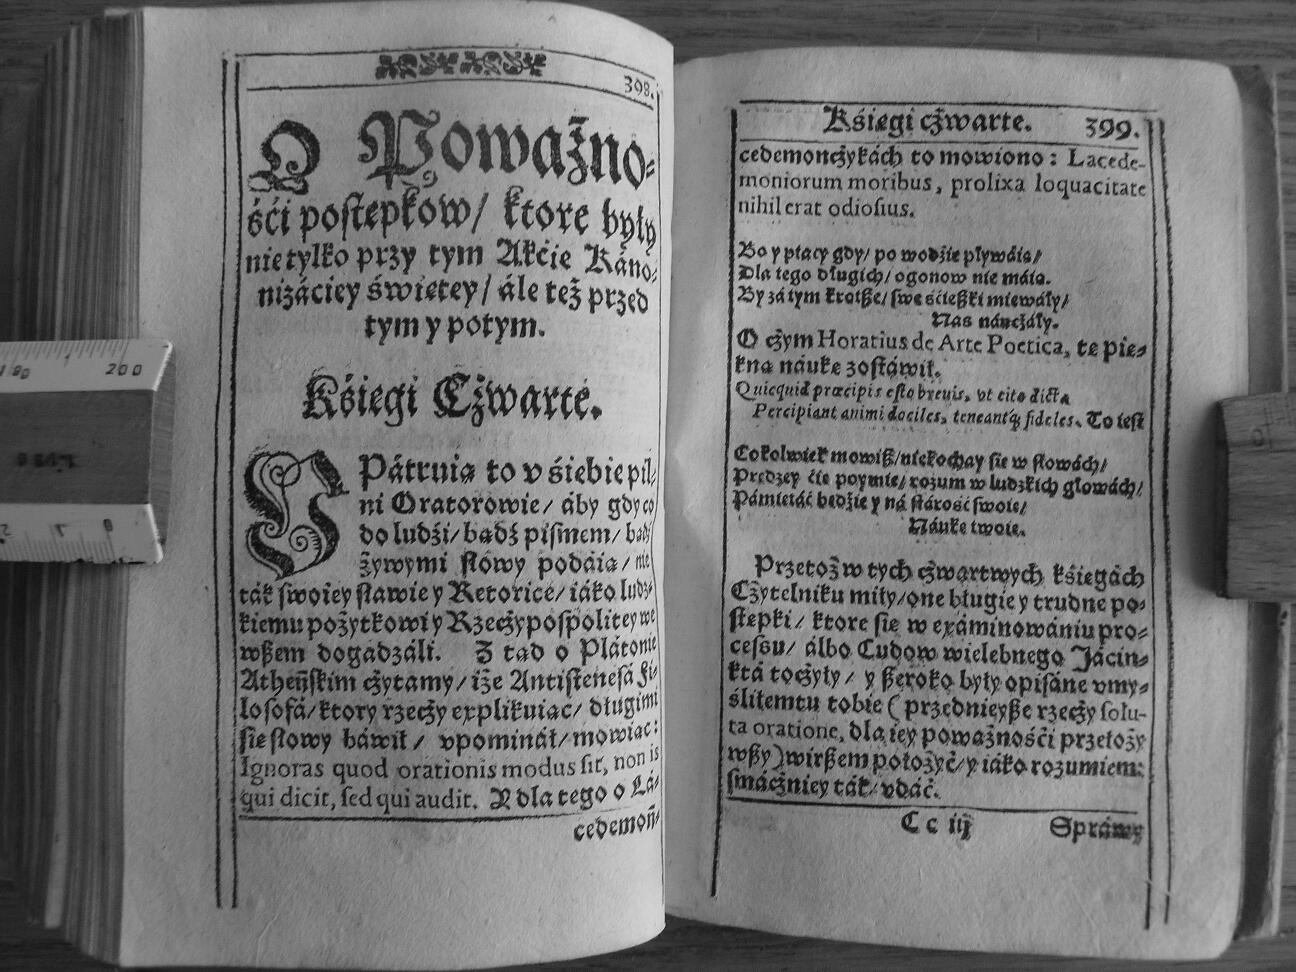 398.
O Poważno-
śći postępkow/ ktore były
nie tylko przy tym Akćie Káno-
nizáciey świętey/ ále też przed
tym y potym.
Kśięgi Cżwarte.
Pátruią to v śiebie pil-
ni Oratorowie/ áby gdy co
do ludźi/ bądź pismem/ bądź
żywymi słowy podáią/ nie
ták swoiey sławie y Retorice/ iáko ludz-
kiemu pożytkowi y Rzecżypospolitey we
wßem dogadzáli. Z tąd o Plátonie
Atheńskim cżytamy/ iże Antistenesá Fi-
losofá/ ktory rzecży explikuiąc/ długimi
się słowy báwił/ vpominał/ mowiąc:
Ignoras quod orationis modus sit, non is
qui dicit, sed qui audit. Y dla tego o Lá-
cedemoń-
Kśięgi cżwarte. 399.
cedemoncżykách to mowiono: Lacede-
moniorum moribus, prolixa loquacitate
nihil erat odiosius.
Bo y ptacy gdy/ po wodźie pływáią/
Dla tego długich/ ogonow nie máią.
By zá tym krotße/ swe śćießki miewáły/
Nas náucżáły.
O cżym Horatius de Arte Poetica, tę pię-
kną náukę zostáwił.
Quicquid præcipis esto breuis, vt cito dicta
Percipiant animi dociles, teneantq; fideles. To iest
Cokolwiek mowiß/ niekochay się w słowách/
Prędzey ćię poymie/ rozum w ludzkich głowách/
Pámiętáć będźie y ná stárość swoię/
Náukę twoię.
Przetoż w tych cżwartwych kśięgách
Cżytelniku miły/ one długie y trudne po-
stępki/ ktore się w exáminowániu pro-
cessu/ álbo Cudow wielebnego Jácin-
ktá tocżyły/ y ßeroko były opisáne vmy-
śliłem tu tobie ( przednieyße rzecży solu-
ta oratione, dla iey poważnośći przełoży
wßy ) wirßem położyć/ y iáko rozumiem:
smácżniey ták/ vdáć.
C c iij Spráwy